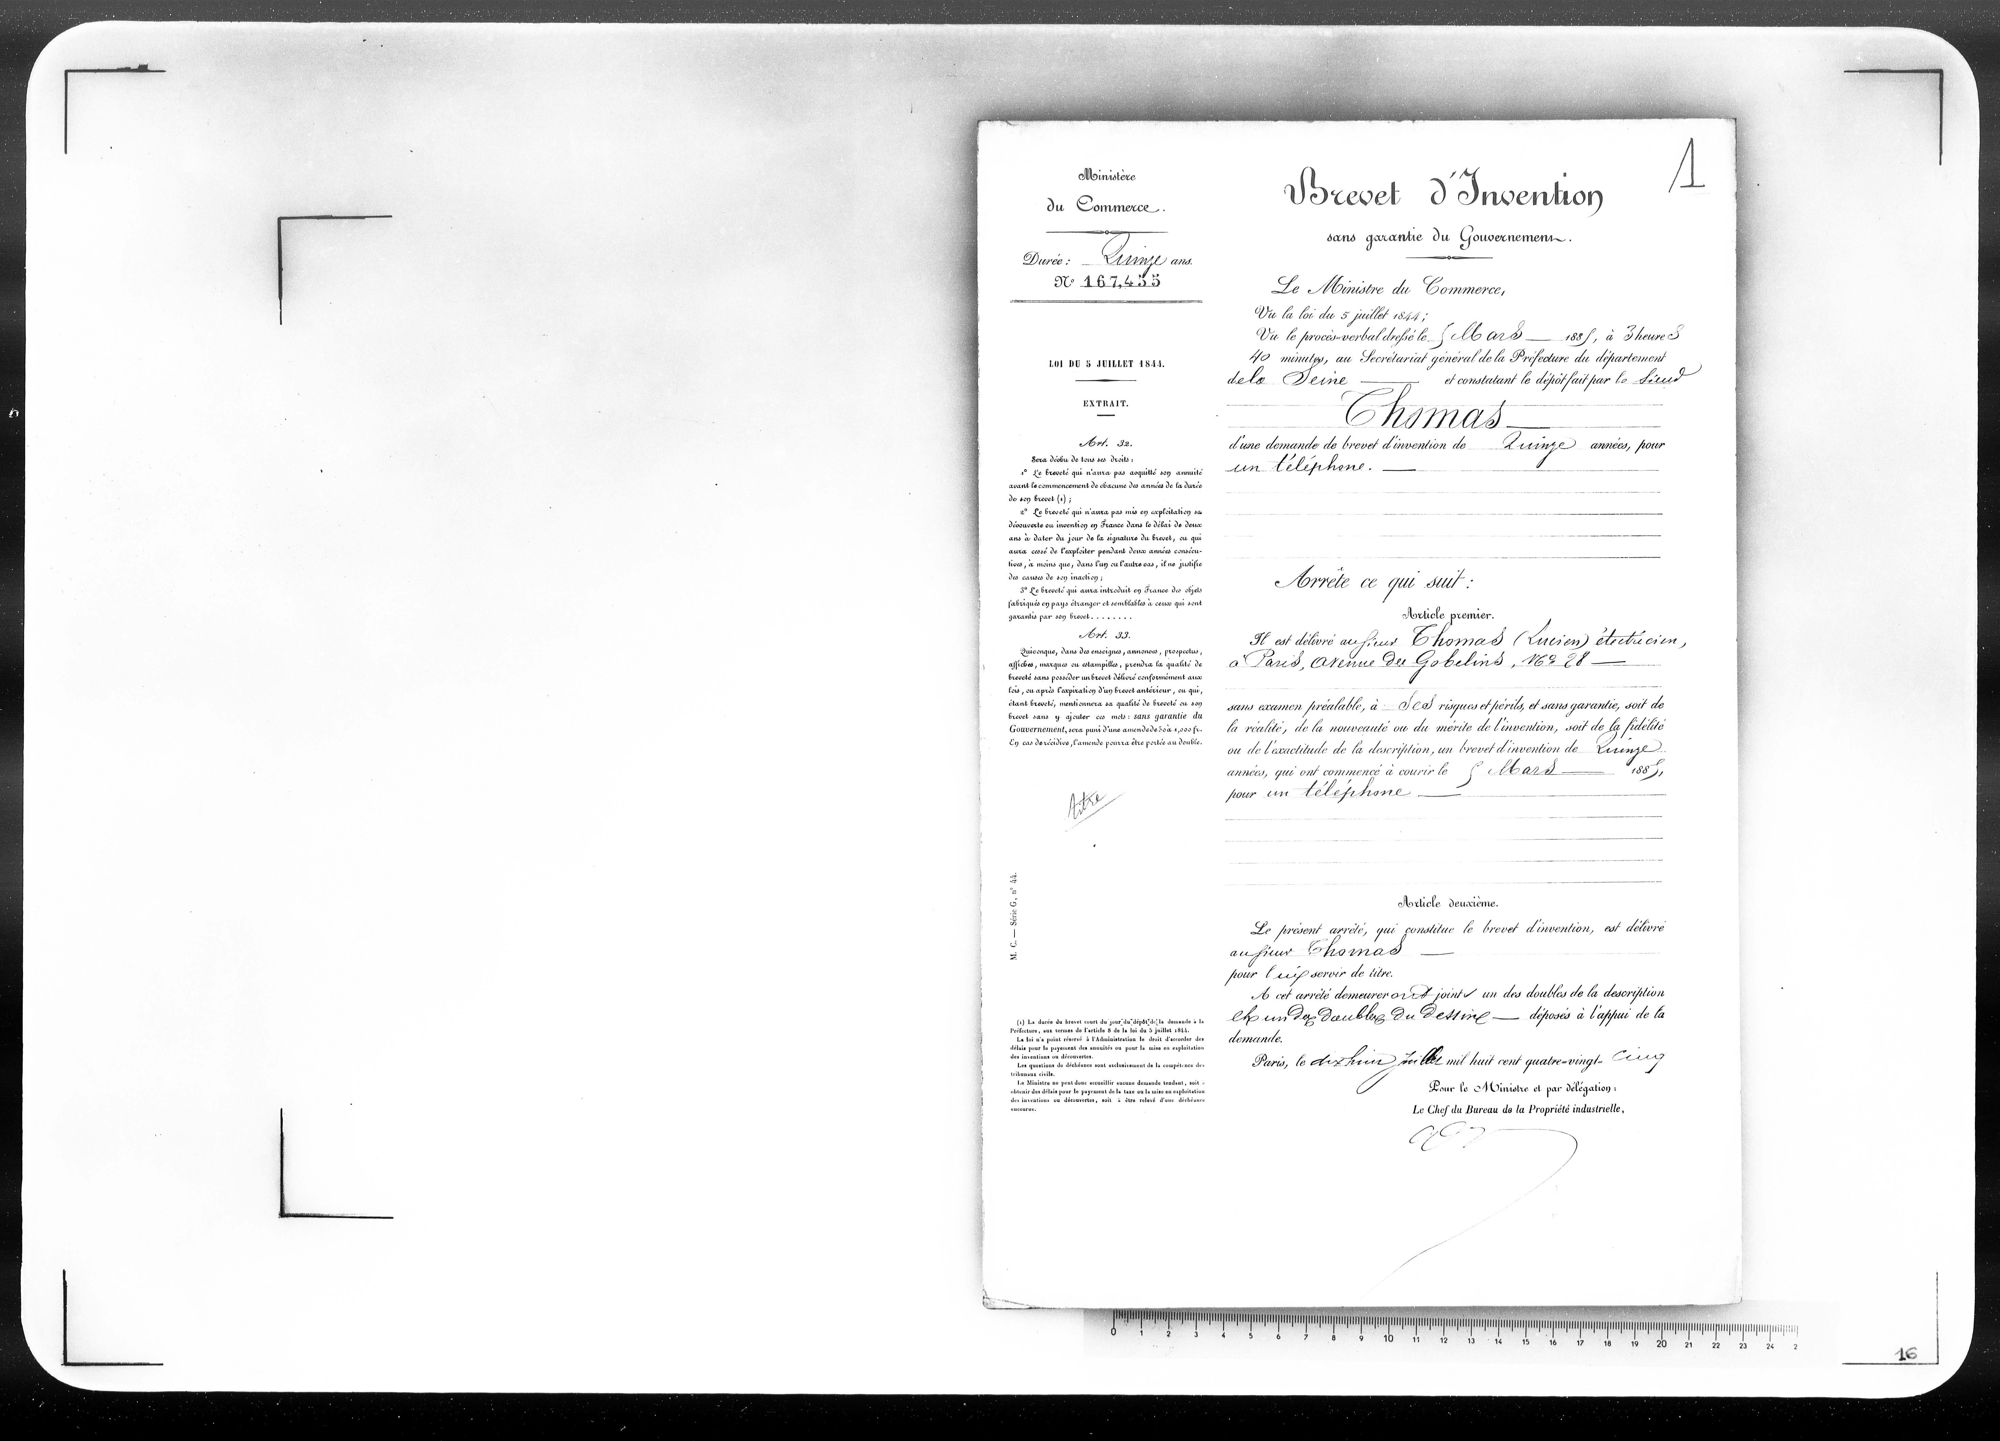 Ministère
du Commerce.
Durée : Quinze ans.
N° 167,455
LOI DU 5 JUILLET 1844.
EXTRAIT.
Art. 32.
Sera déchu de tous ses droits :
1° Le breveté qui n'aura pas acquitté son annuité
avant le commencement de chacune des années de la durée
de son brevet (1) ;
2° Le breveté qui n'aura pas mis en exploitation sa
découverte ou invention en France dans le délai de deux
ans à dater du jour de la signature du brevet, ou qui
aura cessé de l'exploiter pendant deux années consécu-
tives, à moins que, dans l'un ou l'autre cas, il ne justifie
des causes de son inaction ;
3° Le breveté qui aura introduit en France des objets
fabriqués en pays étranger et semblables à ceux qui sont
garantis par son brevet........
Art. 33.
Quiconque, dans des enseignes, annonces, prospectus,
affiches, marques ou estampilles, prendra la qualité de
breveté sans posséder un brevet délivré conformément aux
lois, ou après l'expiration d'un brevet antérieur, ou qui,
étant breveté, mentionnera sa qualité de breveté ou son
brevet sans y ajouter ces mots : sans garantie du
Gouvernement, sera puni d'une amende de 50 à 1,000 fr.
En cas de récidive, l'amende pourra être portée au double.
titre
M. C. — Série G, n° 44.
(1) La durée du brevet court du jour du dépôt de la demande à la
Préfecture, aux termes de l'article 8 de la loi du 5 juillet 1844.
La loi n'a point réservé à l'Administration le droit d'accorder des
délais pour le payement des annuités ou pour la mise en exploitation
des inventions ou découvertes.
Les questions de déchéances sont exclusivement de la compétence des
tribunaux civils.
Le Ministre ne peut donc accueillir aucune demande tendant, soit à
obtenir des délais pour le payement de la taxe ou la mise en exploitation
des inventions ou découvertes, soit à être relevé d'une déchéance
encourue.
1
Brevet d'Invention
sans garantie du Gouvernement.
Le Ministre du Commerce,
Vu la loi du 5 juillet 1844 ;
Vu le procès-verbal dressé le 5 Mars — 1885, à 3 heures
40 minutes, au Secrétariat général de la Préfecture du département
de la Seine — et constatant le dépôt fait par le Sieur
Thomas —
d'une demande de brevet d'invention de Quinze années, pour
un téléphone. —
Arrête ce qui suit :
Article premier.
Il est délivré au sieur Thomas (Lucien) électricien,
à Paris, avenue des Gobelins, N° 28 —
sans examen préalable, à ses risques et périls, et sans garantie, soit de
la réalité, de la nouveauté ou du mérite de l'invention, soit de la fidélité
ou de l'exactitude de la description, un brevet d'invention de Quinze
années, qui ont commencé à courir le 5 Mars — 1885,
pour un téléphone —
Article deuxième.
Le présent arrêté, qui constitue le brevet d'invention, est délivré
au sieur Thomas —
pour lui servir de titre.
A cet arrêté demeureront joints un des doubles de la description
et un des doubles du dessin — déposés à l'appui de la
demande.
Paris, le dix huit Juillet mil huit cent quatre-vingt-cinq
Pour le Ministre et par délégation :
Le Chef du Bureau de la Propriété industrielle,
0 1 2 3 4 5 6 7 8 9 10 11 12 13 14 15 16 17 18 19 20 21 22 23 24 2
16